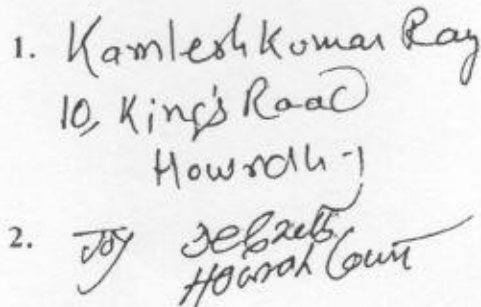 1. Kamlesh Kumar Ray
10, King's Road
Howrah-1
2. Joy
Howrah Court